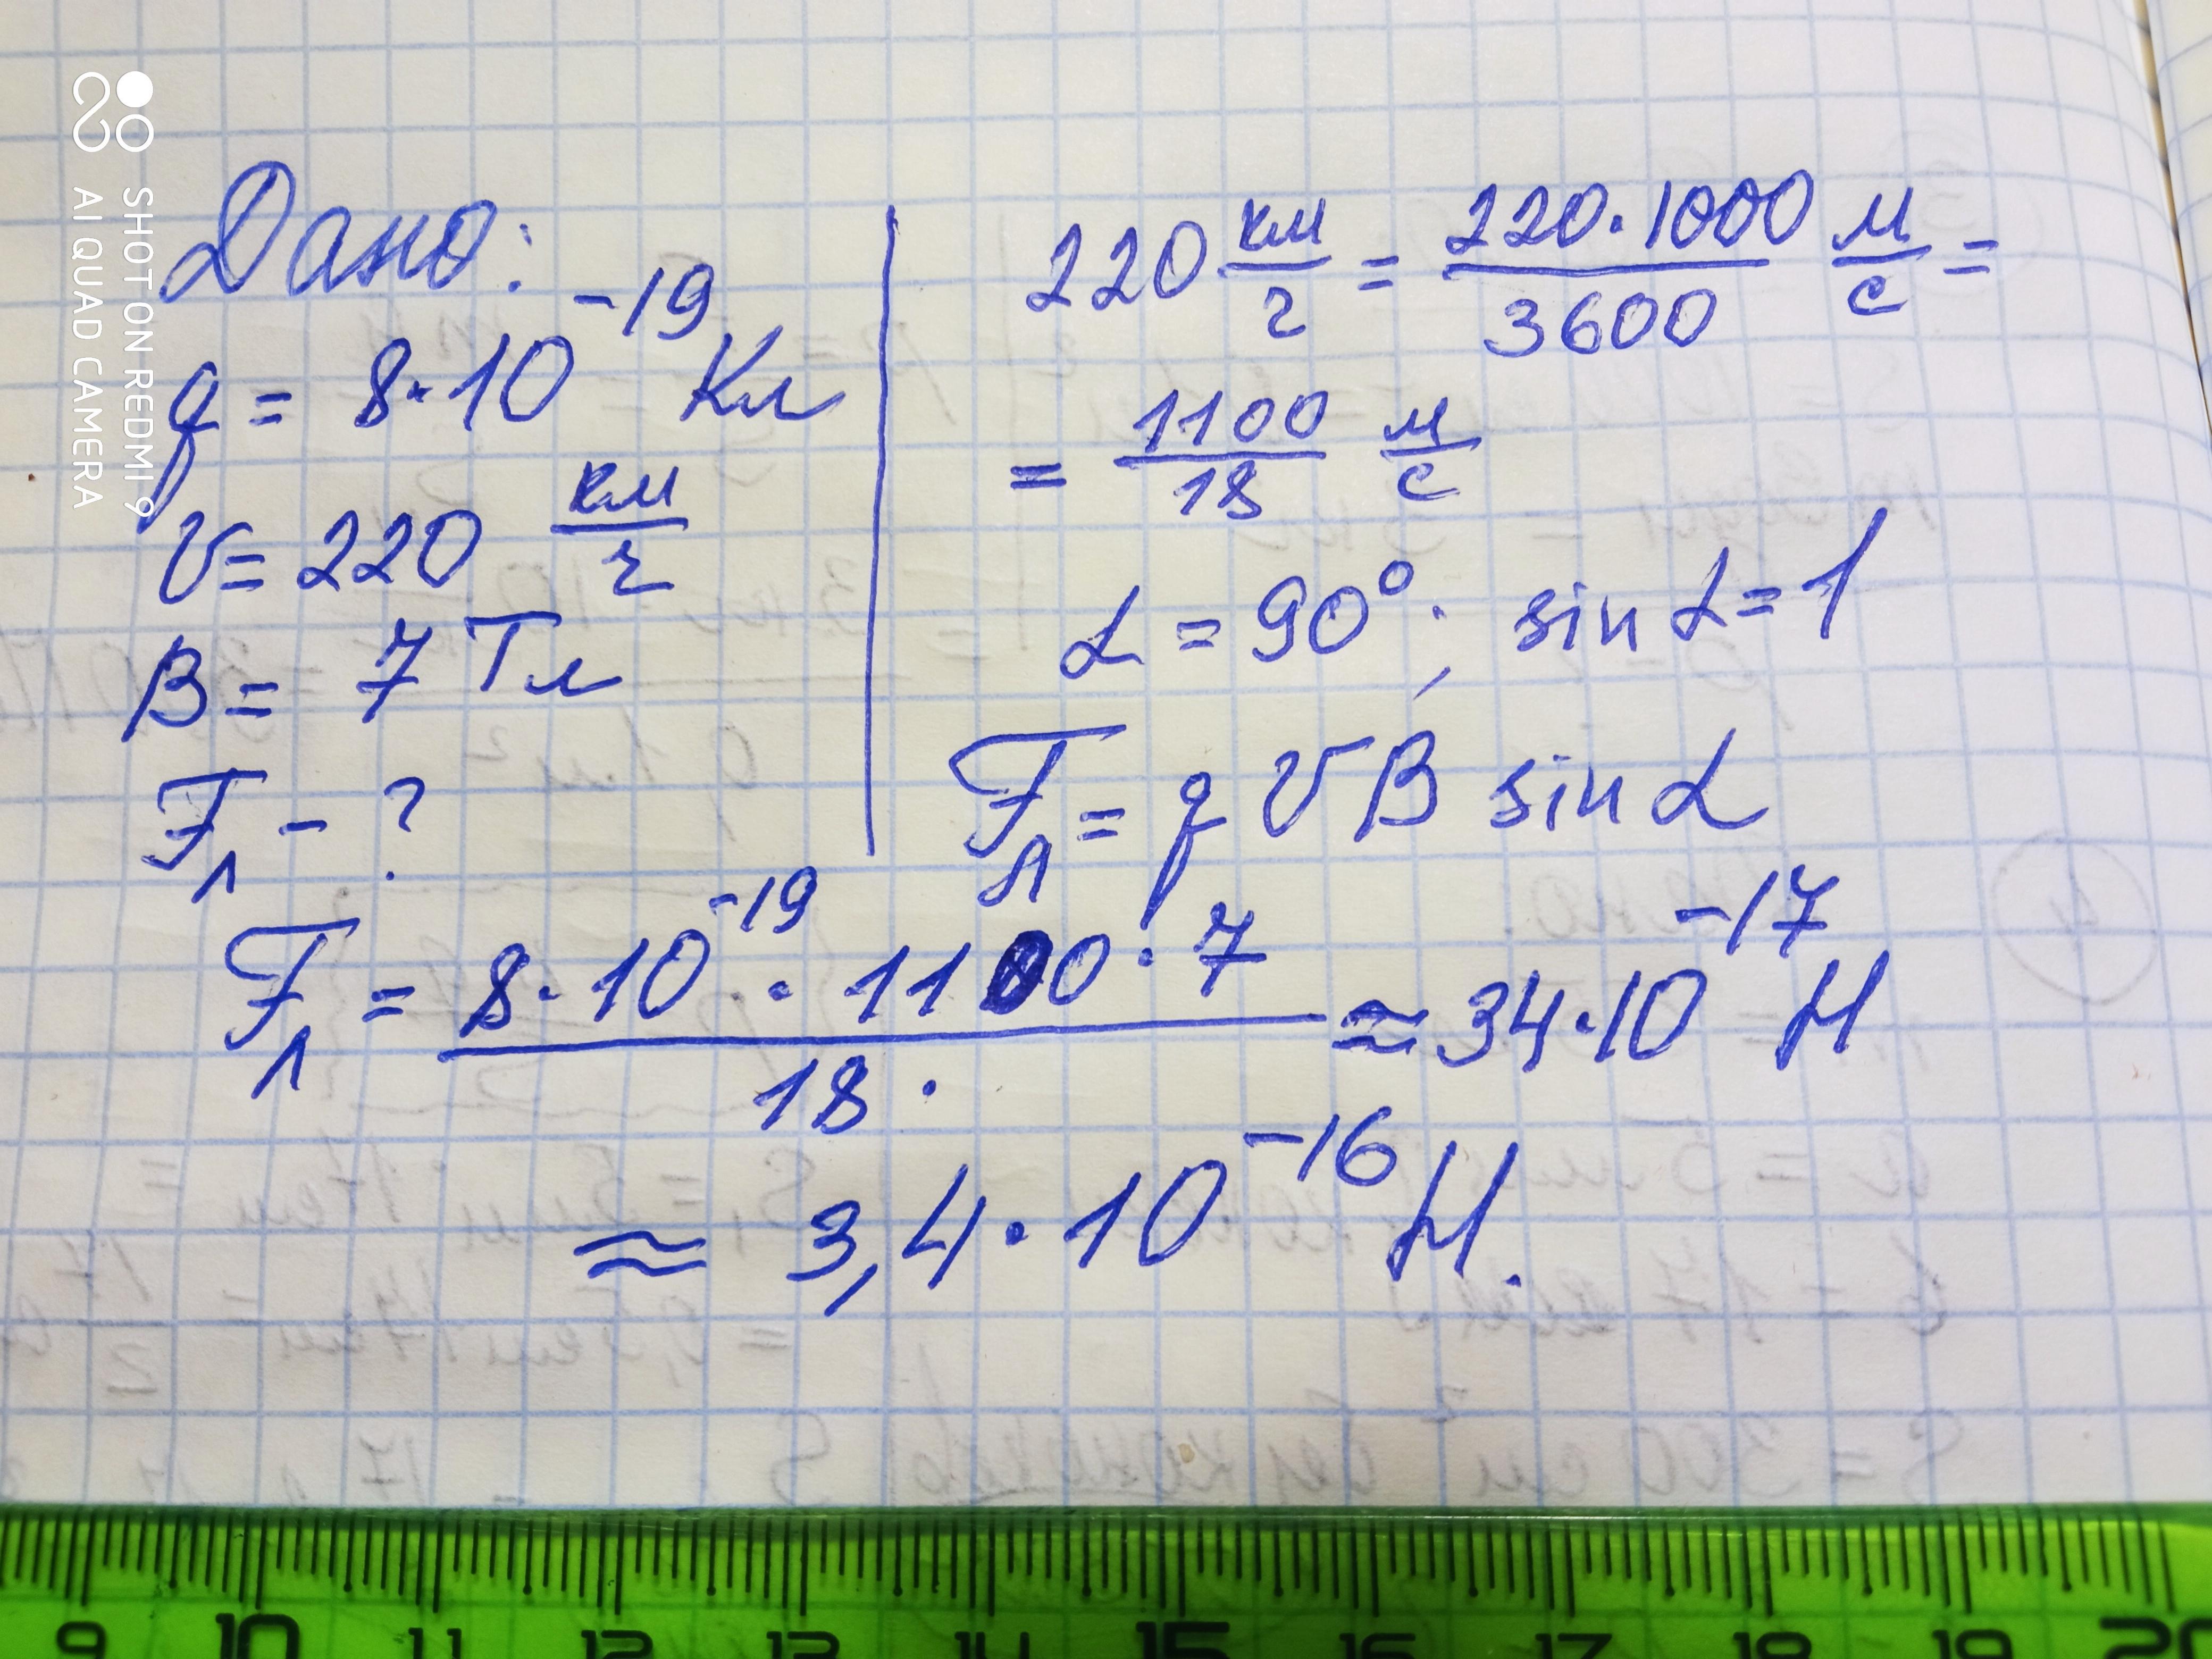 SHOT ON REDMI 9
AI QUAD CAMERA
Дано:
q = 8·10⁻¹⁹ Кл
v = 220 км/г
B = 7 Тл
Fл - ?
220 км/г = 220·1000/3600 м/с =
= 1100/18 м/с
α = 90°; sin α = 1
Fл = q v B sin α
Fл = 8·10⁻¹⁹ · 1100 · 7 / 18 · ≈ 34·10⁻¹⁷ Н
≈ 3,4·10⁻¹⁶ Н.
9 10 11 12 13 14 15 16 17 18 19 20